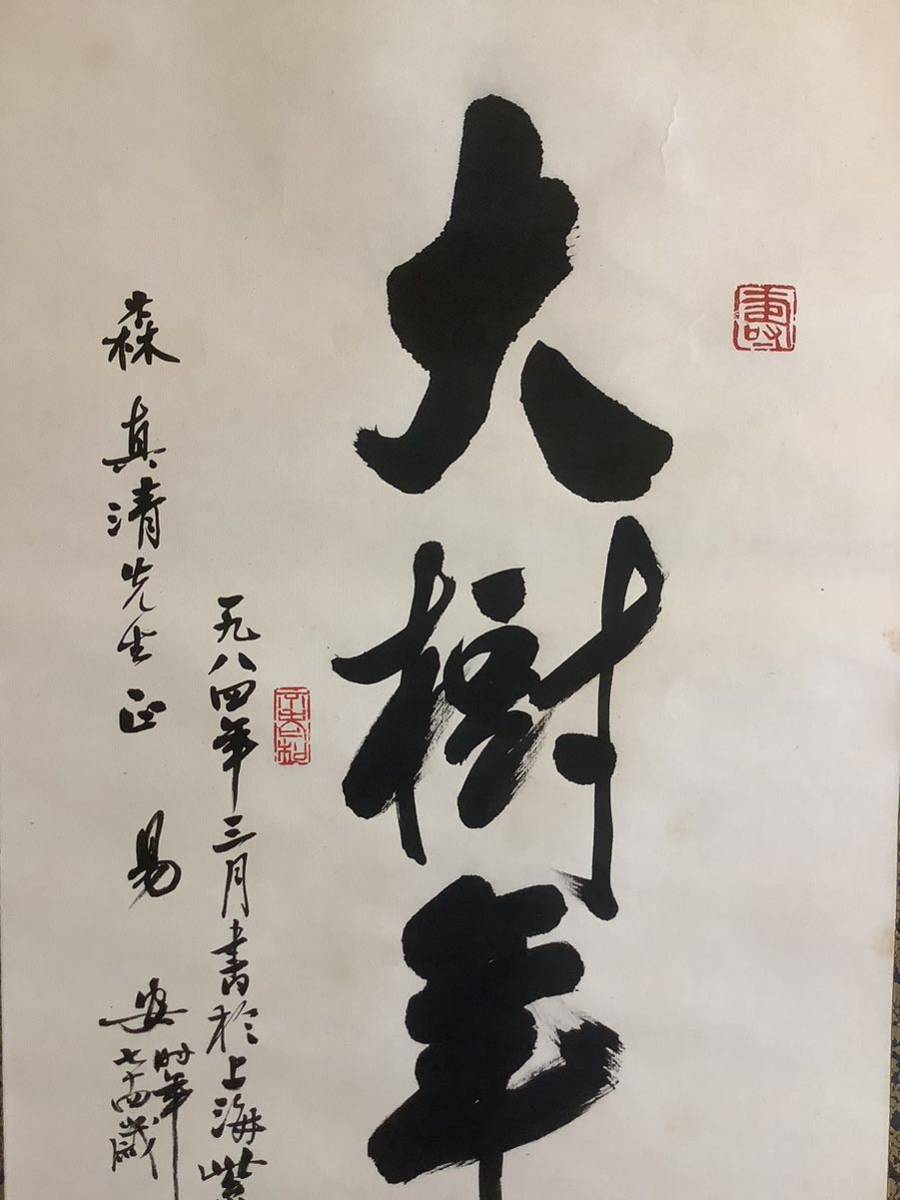 大樹年
一九八四年三月書於上海紫
森真清先生正 易安
时年
七十四歲